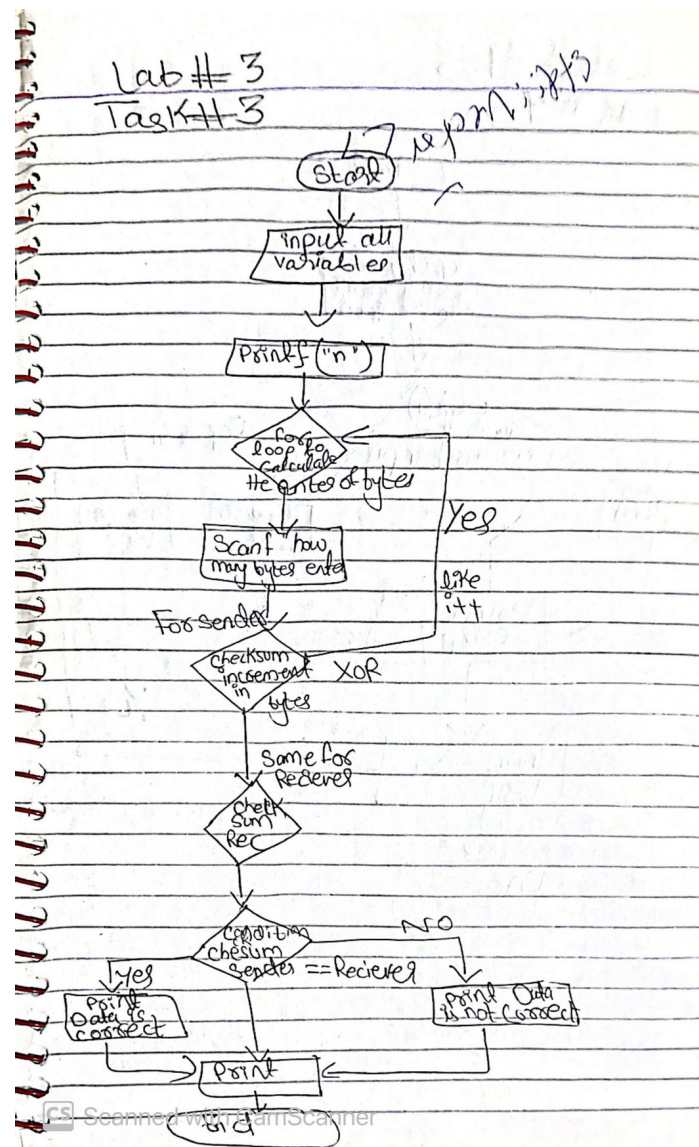 Lab # 3
Task # 3
Start
input all
variables
Printf ("n")
For
loop to
Calculate
the enter of bytes
Yes
Scanf how
may bytes enter
like
i++
For sender
checksum
increment
in
bytes
XOR
Same for
Reciever
Check
Sum
Rec
Condition
chesum
sender == Reciever
NO
Yes
Print
Data is
correct
print Data
is not correct
Print
CS Scanned with CamScanner